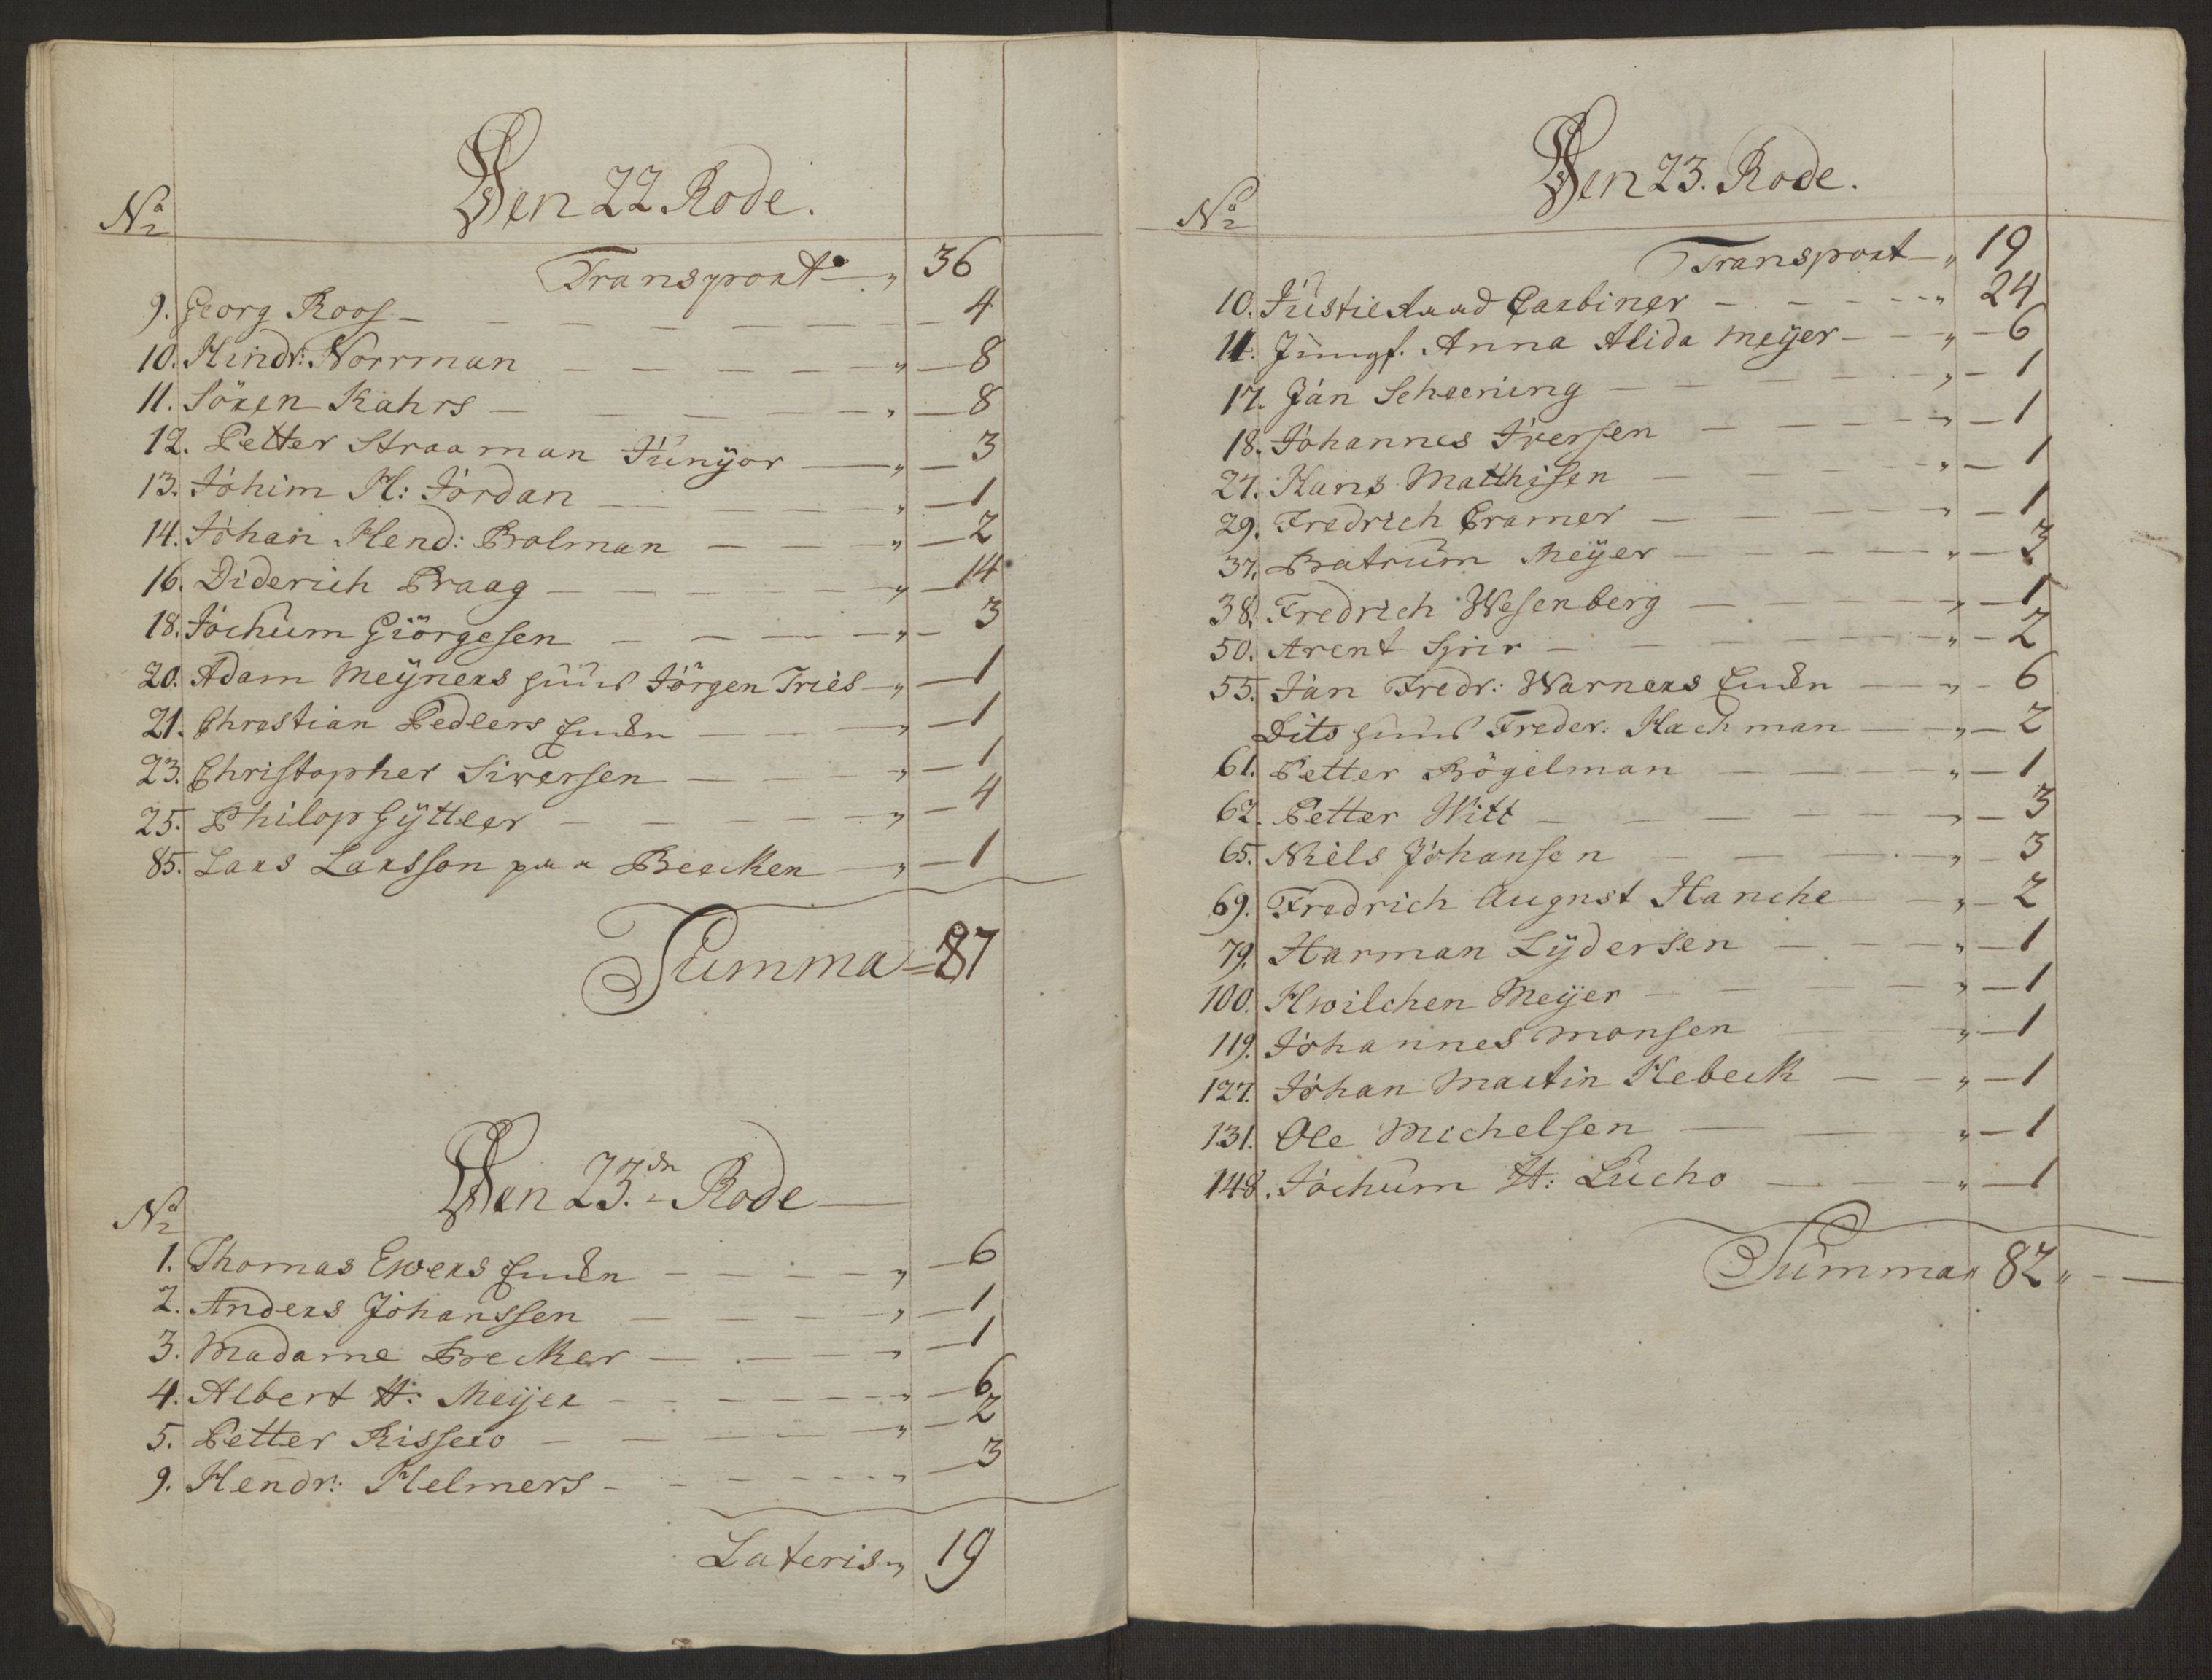 Den 22 Rode.
No
Transport „ 36
9. Georg Roos — 4
10. Hindr: Norrman „ 8
11. Sören Kahrs „ 8
12. Petter Straaman Junÿor „ 3
13. Johim H: Jordan „ 1
14. Johan Hend: Bolman „ 2
16. Diderich Praag „ 14
18. Jochum Giörgesen „ 3
20. Adam Meÿners huus Jörgen Tries „ 1
21. Christian Pedlers Enken „ 1
23. Christopher Siversen „ 1
25. Philop Gÿtler „ 4
85. Lars Larsson paa Becken „ 1
Summa = 87
Den 23.dn Rode
No
1. Thomas Ewers Enken „ 6
2. Anders Johanssen „ 1
3. Madame Becker „ 1
4. Albert H: Meÿer „ 6
5. Petter Rissero „ 2
9. Hendr: Helmers „ 3
Lateris „ 19
Den 23. Rode.
No
Transport „ 19
10. Justie Raad Carbiner „ 24
11. Jumgf. Anna Alida Meÿer „ 6
17. Jan Scheening „ 1
18. Johannes Iversen „ 1
27. Hans Matthisen „ 1
29. Fredrich Cramer „ 1
37. Batrum Meÿer „ 3
38. Fredrich Wesenberg „ 1
50. Arent „ 2
55. Jan Fredr: Warners Enken „ 6
Dito huus Freder: Hachman „ 2
61. Petter Bögelman „ 1
62. Petter Witt „ 3
65. Niels Johansen „ 3
69. Fredrich August Hanche „ 2
79. Harman Lÿdersen „ 1
100. Hwilchen Meÿer „ 1
119. Johannes Monsen „ 1
127. Johan Martin Hebeck „ 1
131. Ole Michelsen „ 1
148. Jochum H: Lucho „ 1
Summa „ 82 „